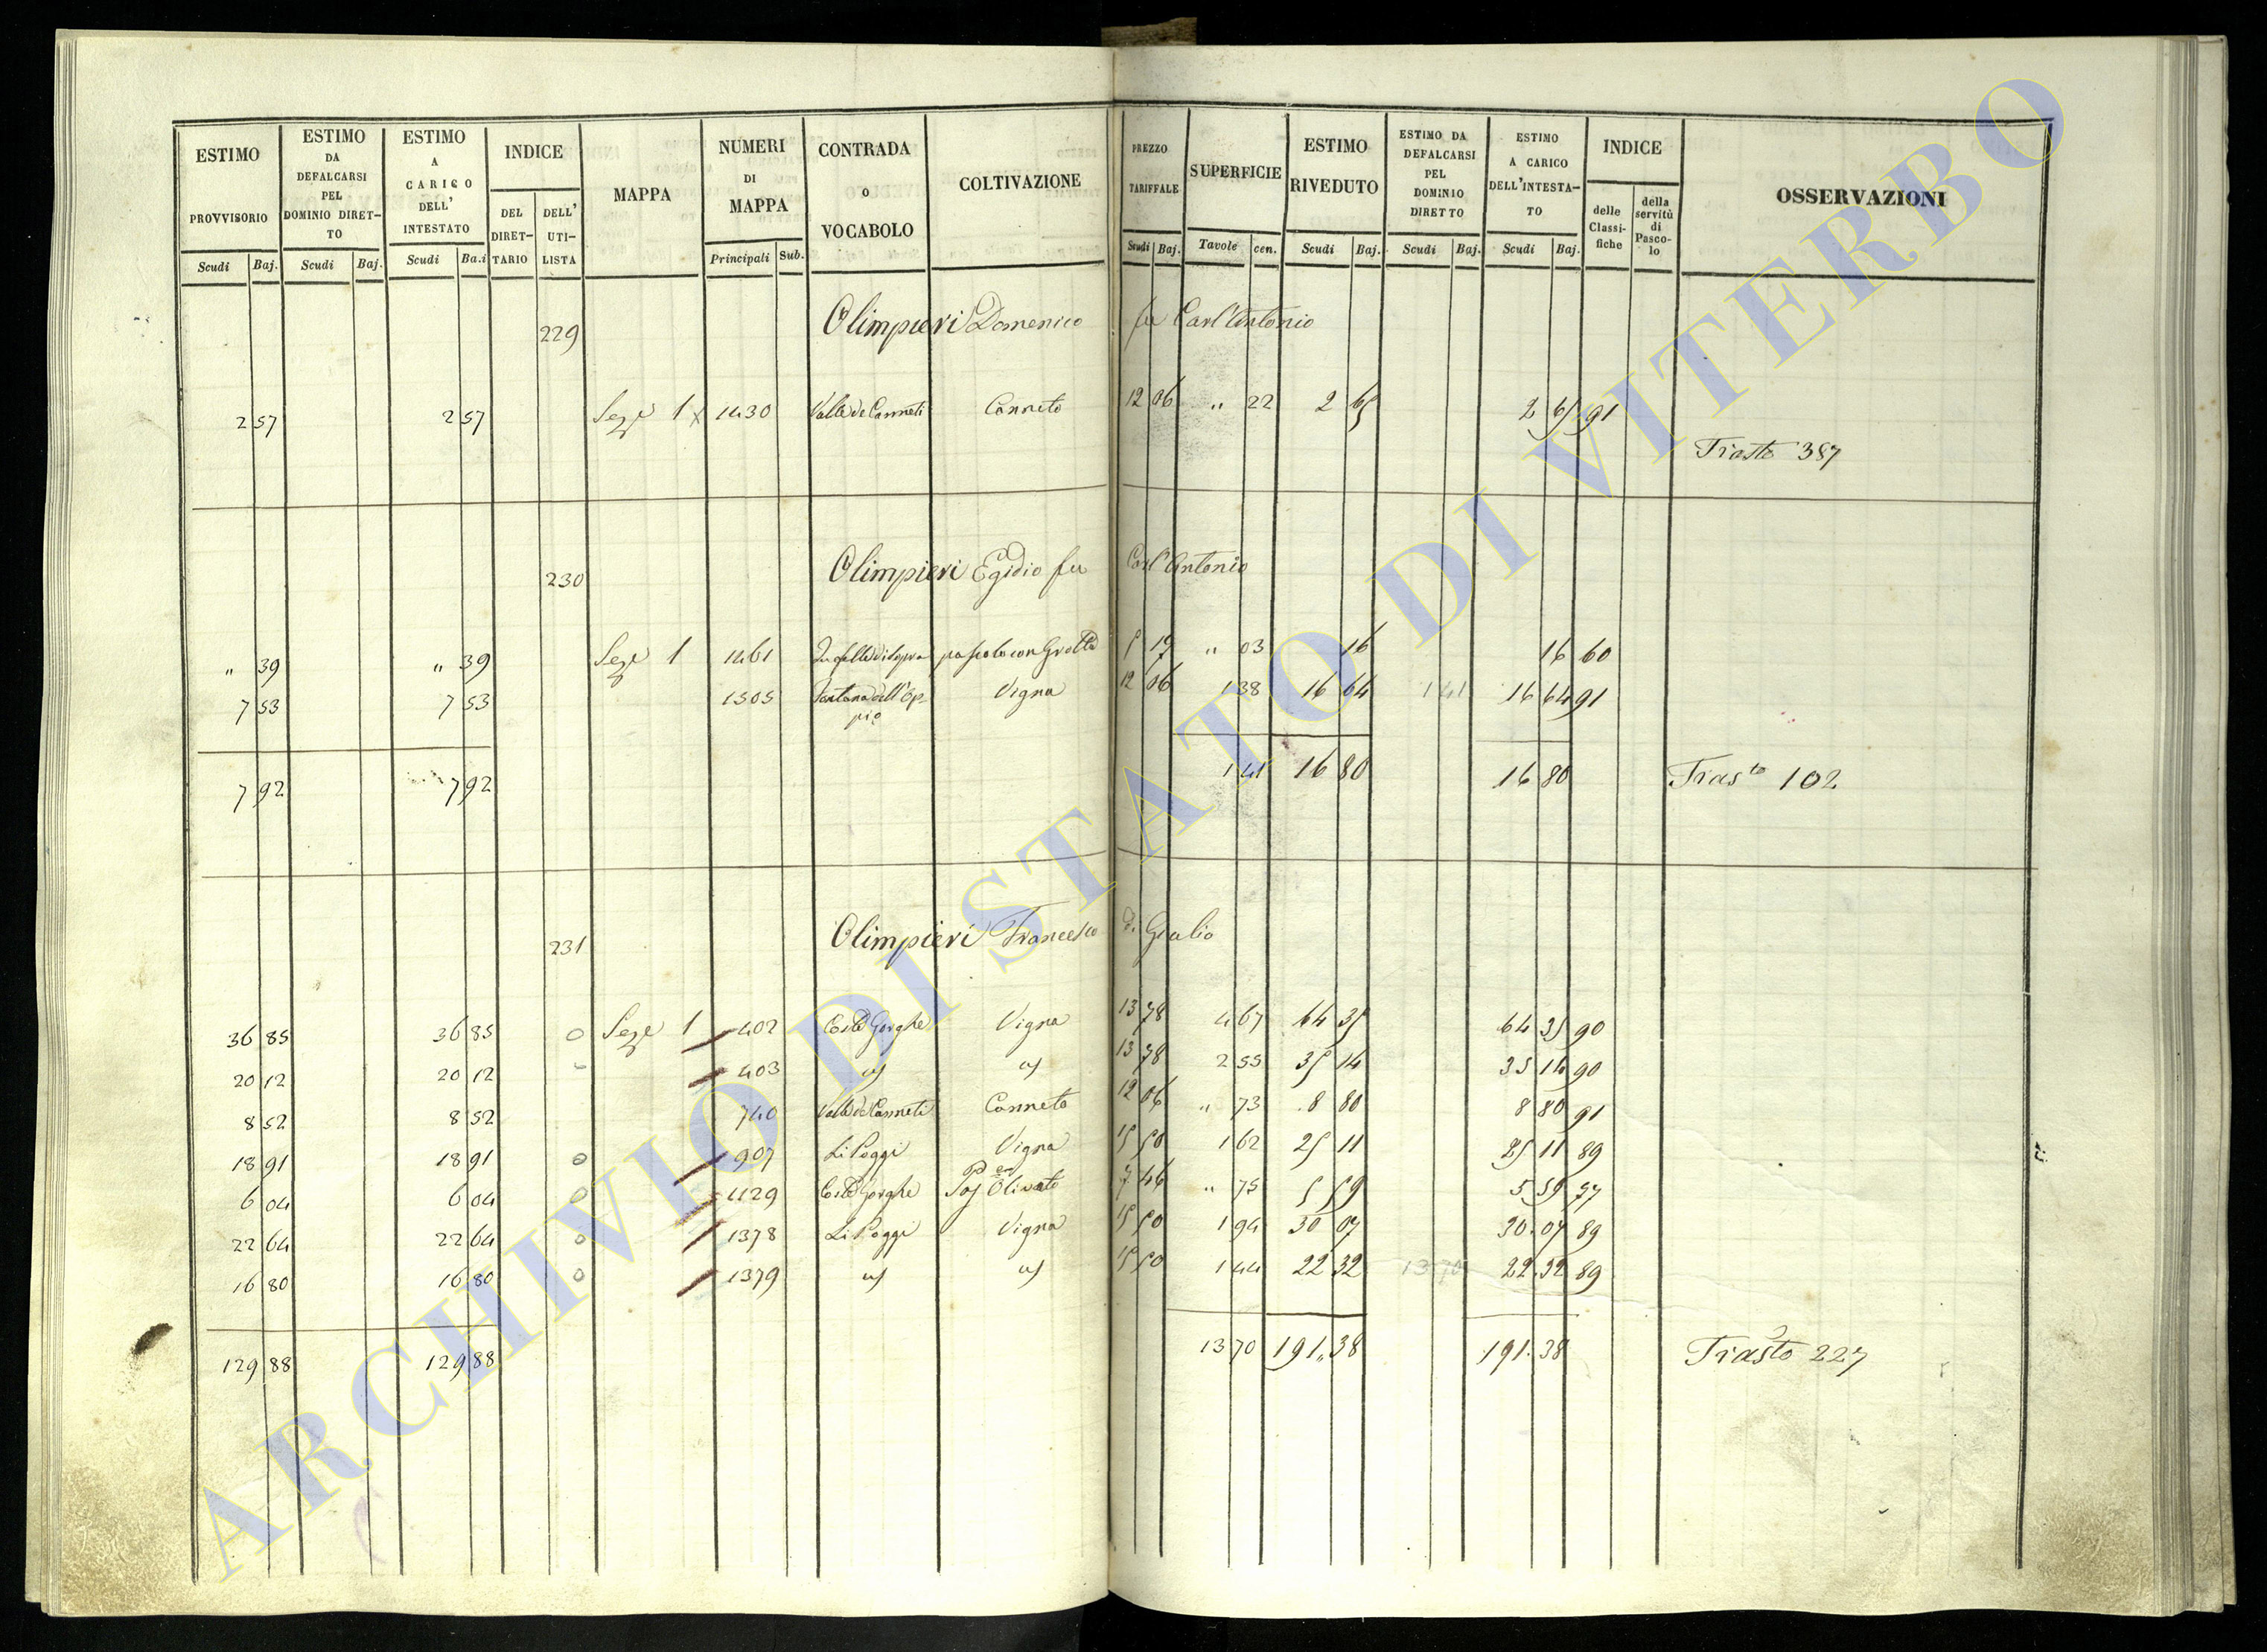 ESTIMO PROVVISORIO Scudi Baj. ESTIMO DA DEFALCARSI PEL DOMINIO DIRET-TO Scudi Baj. ESTIMO A CARICO DELL' INTESTATO Scudi Ba.i INDICE DEL DIRET-TARIO DELL' UTI-LISTA MAPPA NUMERI DI MAPPA Principali Sub. CONTRADA O VOCABOLO COLTIVAZIONE PREZZO TARIFFALE Scudi Baj. SUPERFICIE Tavole cen. ESTIMO RIVEDUTO Scudi Baj. ESTIMO DA DEFALCARSI PEL DOMINIO DIRETTO Scudi Baj. ESTIMO A CARICO DELL'INTESTA-TO Scudi Baj. INDICE delle Classi-fiche della servitù di Pasco-lo OSSERVAZIONI
229 Olimpieri Domenico fu Carl'Antonio
2 57 2 57 Seze 1 x 1430 Valle de Canneti Canneto 12 06 " 22 2 65 2 65 91
Trasto 387
230 Olimpieri Egidio fu Carl'Antonio
" 39 " 39 Seze 1 1461 pascolo con Grotta 5 19 " 03 16 16 60
7 53 7 53 1505 Fontana dell'Op-pio Vigna 12 06 1 38 16 64 1 41 16 64 91
7 92 7 92 1 41 16 80 16 80 Tras.to 102
231 Olimpieri Francesco di Giulio
36 85 36 85 0 Seze 1 402 Coste Gorghe Vigna 13 78 4 67 64 35 64 35 90
20 12 20 12 403 " " 13 78 2 55 35 14 35 14 90
8 52 8 52 740 Valle de Canneti Canneto 12 06 " 73 8 80 8 80 91
18 91 18 91 0 907 Li Poggi Vigna 15 50 1 62 25 11 25 11 89
6 04 6 04 0 1129 Coste Gorghe Pas Olivato 7 46 " 75 5 59 5 59 77
22 64 22 64 0 1378 Li Poggi Vigna 15 50 1 94 30 07 30 07 89
16 80 16 80 0 1379 " " 15 50 1 44 22 32 13 70 22 32 89
129 88 129 88 13 70 191 38 191 38 Trasto 227
ARCHIVIO DI STATO DI VITERBO